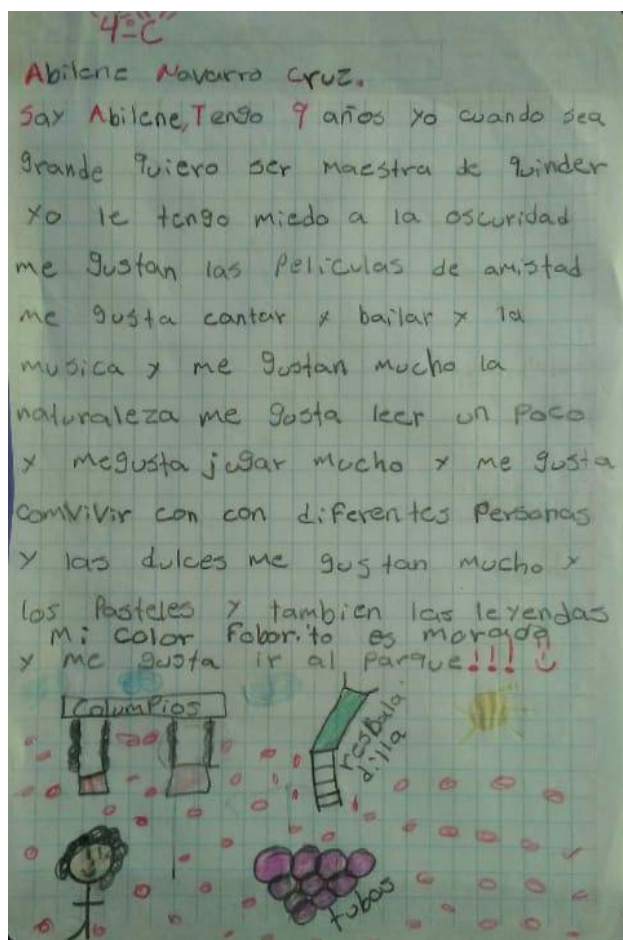 4ºC
Abilene Navarro Cruz.
Say Abilene, Tengo 9 años yo cuando sea
grande quiero ser maestra de quinder
yo le tengo miedo a la oscuridad
me gustan las Peliculas de amistad
me gusta cantar y bailar y la
musica y me gustan mucho la
naturaleza me gusta leer un poco
y megusta jugar mucho y me gusta
comvivir con con diferentes Personas
y las dulces me gustan mucho y
los Pasteles y tambien las leyendas
mi color faborito es morado
y me gusta ir al parque!!!
Columpios
resbala.
dilla
tubos